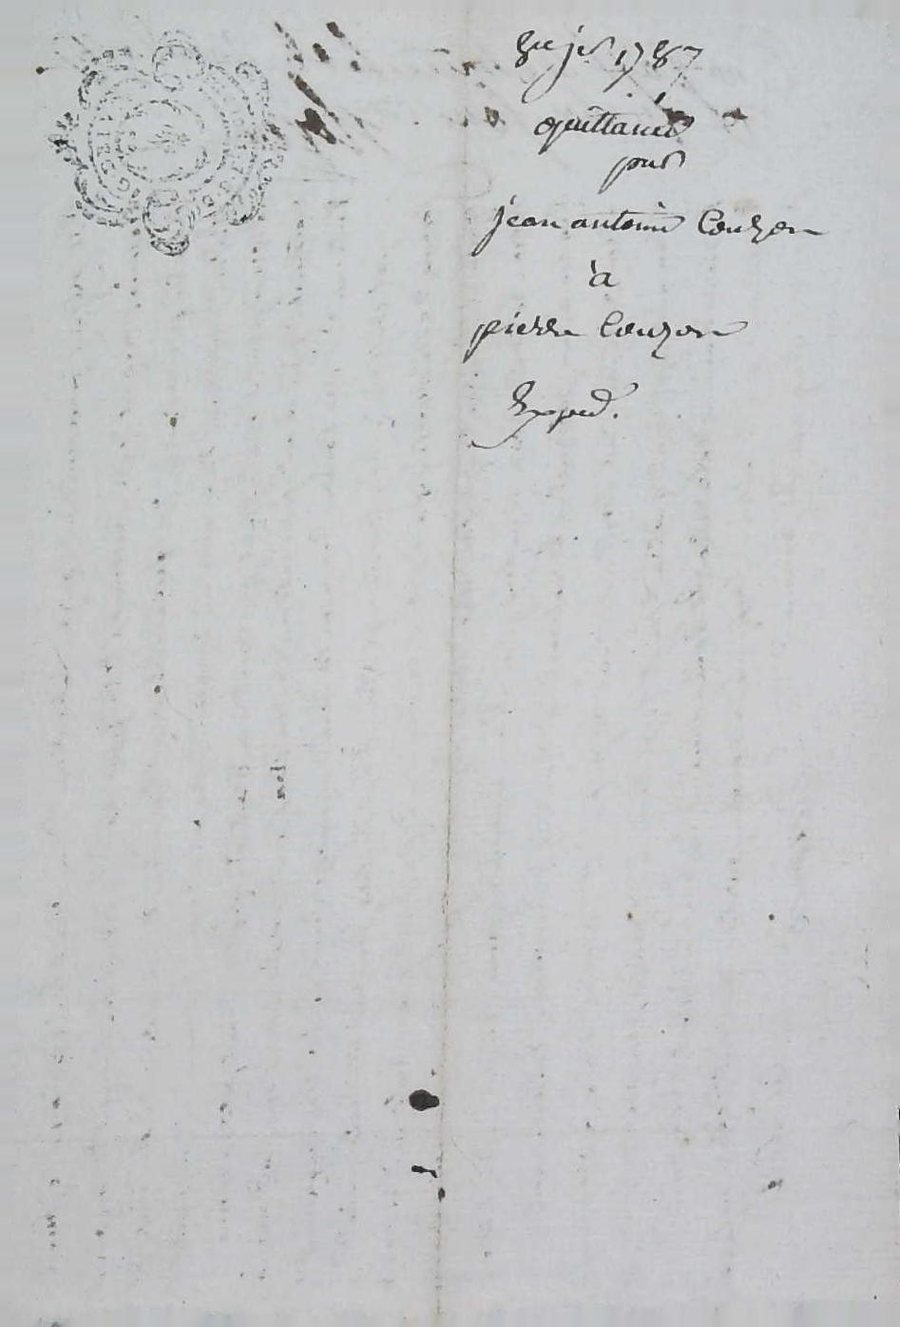 8e jer 1787
quittance
par
jean antoine Couzon
à
pierre Couzon
Exped.